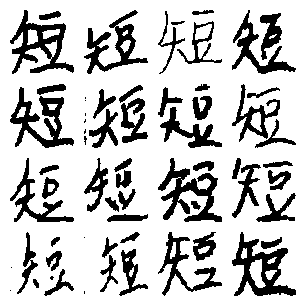 短短短短
短短短短
短短短短
短短短短